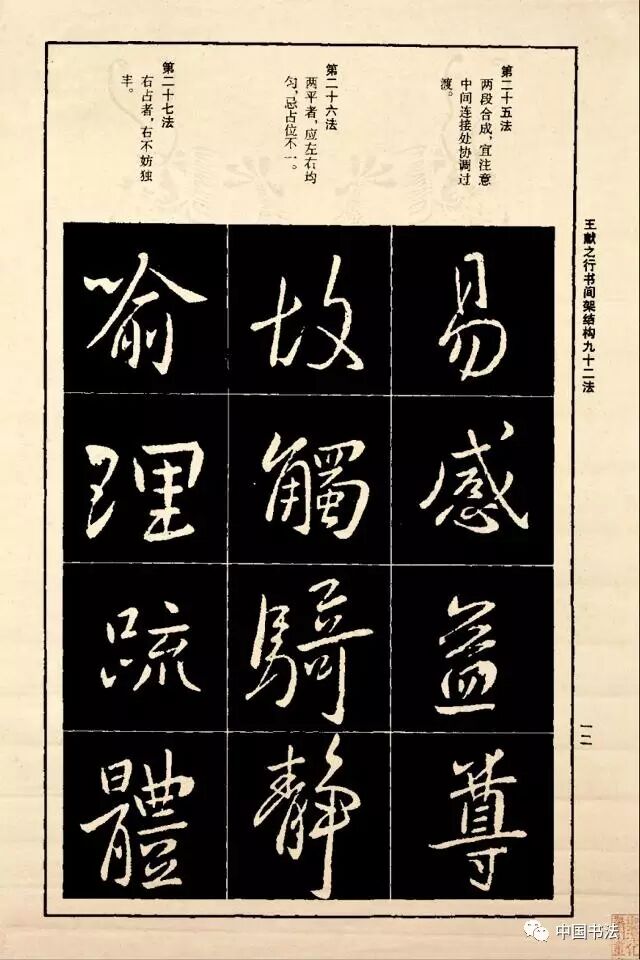 王献之行书间架结构九十二法
一二
第二十五法
两段合成,宜注意
中间连接处协调过
渡。
易
感
益
尊
第二十六法
两平者,应左右均
匀,忌占位不一。
故
觸
騎
静
第二十七法
右占者,右不妨独
丰。
喻
理
疏
體
中国书法